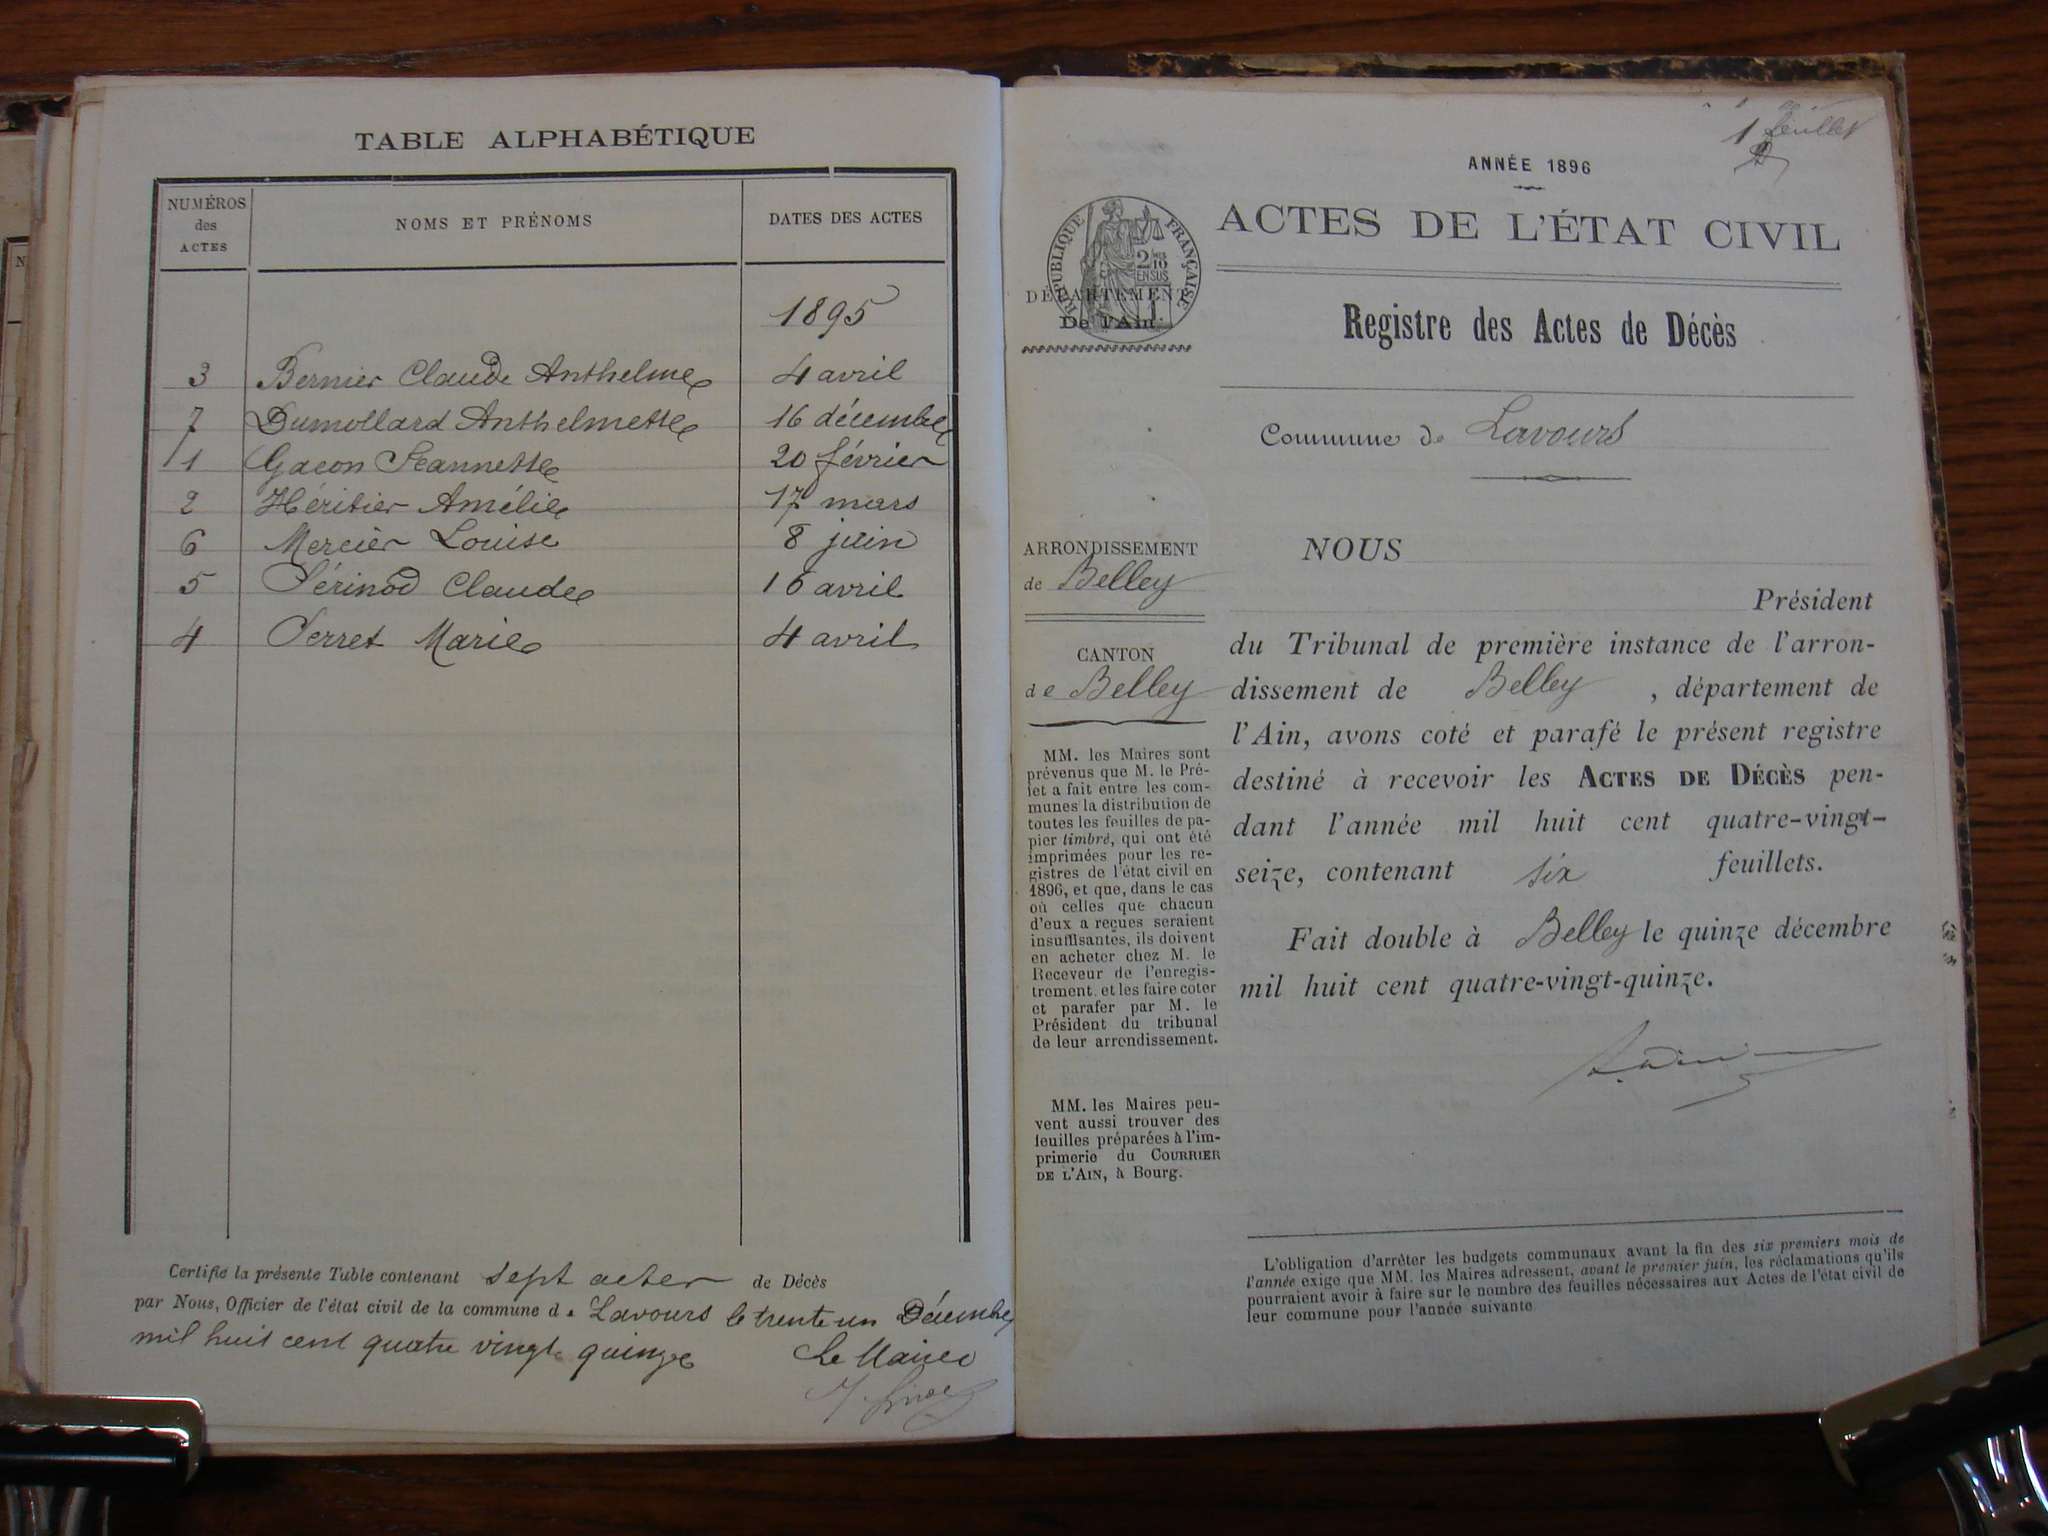 TABLE ALPHABÉTIQUE
NUMÉROS des ACTES
NOMS ET PRÉNOMS
DATES DES ACTES
1895
3 Bernier Claude Anthelme 4 avril
7 Dumollard Anthelmette 16 décembre
1 Gacon Jeannette 20 février
2 Héritier Amélie 17 mars
6 Mercier Louise 8 juin
5 Périnod Claude 16 avril
4 Perret Marie 4 avril
Certifié la présente Table contenant sept actes de Décès
par Nous, Officier de l'état civil de la commune de Lavours le trente un Décembre
mil huit cent quatre vingt quinze
Le Maire
1 feuillet
ANNÉE 1896
ACTES DE L'ÉTAT CIVIL
RÉPUBLIQUE FRANÇAISE
2/10 EN SUS
DÉPARTEMENT
De l'Ain.
Registre des Actes de Décès
Commune de Lavours
ARRONDISSEMENT
de Belley
CANTON
de Belley
MM. les Maires sont
prévenus que M. le Pré-
fet a fait entre les com-
munes la distribution de
toutes les feuilles de pa-
pier timbré, qui ont été
imprimées pour les re-
gistres de l'état civil en
1896, et que, dans le cas
où celles que chacun
d'eux a reçues seraient
insuffisantes, ils doivent
en acheter chez M. le
Receveur de l'enregis-
trement et les faire coter
et parafer par M. le
Président du tribunal
de leur arrondissement.
MM. les Maires peu-
vent aussi trouver des
feuilles préparées à l'im-
primerie du COURRIER
DE L'AIN, à Bourg.
NOUS
Président
du Tribunal de première instance de l'arron-
dissement de Belley, département de
l'Ain, avons coté et parafé le présent registre
destiné à recevoir les ACTES DE DÉCÈS pen-
dant l'année mil huit cent quatre-vingt-
seize, contenant six feuillets.
Fait double à Belley le quinze décembre
mil huit cent quatre-vingt-quinze.
L'obligation d'arrêter les budgets communaux avant la fin des six premiers mois de
l'année exige que MM. les Maires adressent, avant le premier juin, les réclamations qu'ils
pourraient avoir à faire sur le nombre des feuilles nécessaires aux Actes de l'état civil de
leur commune pour l'année suivante